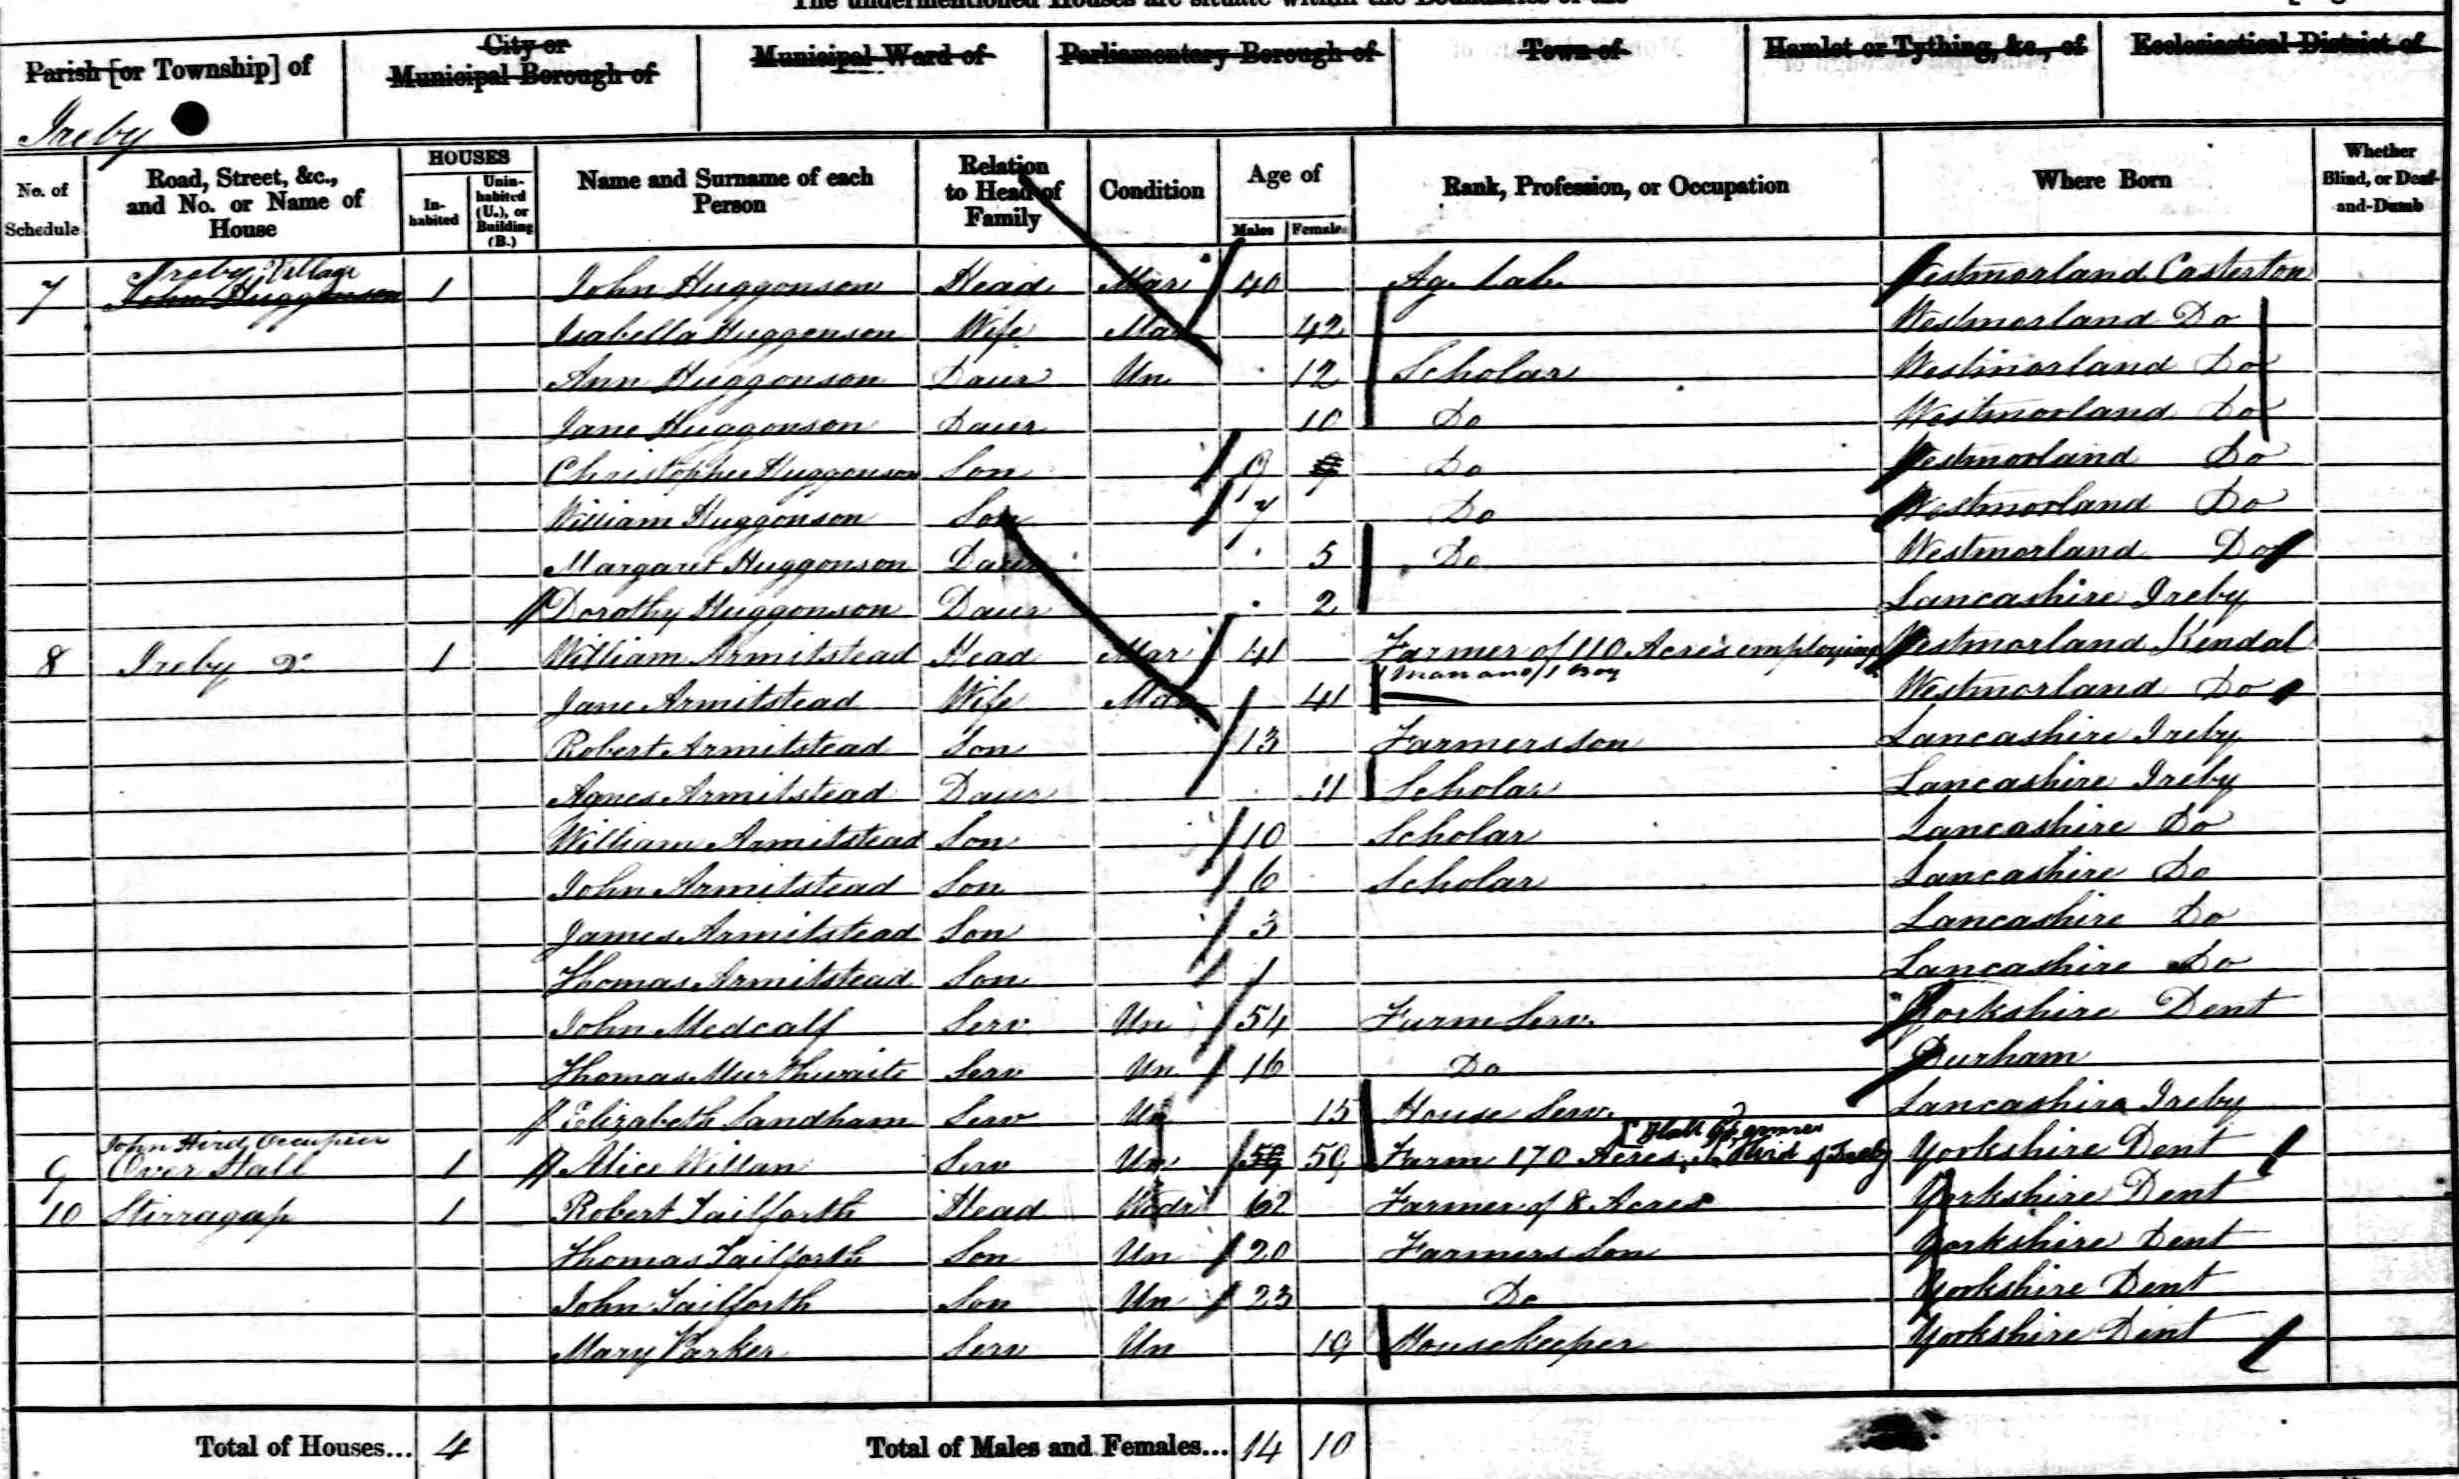 The undermentioned Houses are situate within the Boundaries of the
Parish [or Township] of
Ireby
City or Municipal Borough of
Municipal Ward of
Parliamentary Borough of
Town of
Hamlet or Tything, &c., of
Ecclesiastical District of
No. of Schedule
Road, Street, &c., and No. or Name of House
HOUSES
In-habited
Unin-habited (U.), or Building (B.)
Name and Surname of each Person
Relation to Head of Family
Condition
Age of
Males
Females
Rank, Profession, or Occupation
Where Born
Whether Blind, or Deaf-and-Dumb
7 Ireby Village John Huggonson 1 John Huggonson Head Mar 40 Ag. Lab. Westmorland Casterton
Isabella Huggonson Wife Mar 42 Westmorland Do
Ann Huggonson Daur Un 12 Scholar Westmorland Do
Jane Huggonson Daur 10 Do Westmorland Do
Christopher Huggonson Son 9 9 Do Westmorland Do
William Huggonson Son 7 Do Westmorland Do
Margaret Huggonson Daur 5 Do Westmorland Do
Dorothy Huggonson Daur 2 Lancashire Ireby
8 Ireby Do 1 William Armitstead Head Mar 41 Farmer of 110 Acres employing Westmorland Kendal
1 man and 1 boy
Jane Armitstead Wife Mar 41 Westmorland Do
Robert Armitstead Son 13 Farmers son Lancashire Ireby
Agnes Armitstead Daur 11 Scholar Lancashire Ireby
William Armitstead Son 10 Scholar Lancashire Do
John Armitstead Son 6 Scholar Lancashire Do
James Armitstead Son 3 Lancashire Do
Thomas Armitstead Son 1 Lancashire Do
John Medcalf Serv Un 54 Farm Serv. Yorkshire Dent
Thomas Murthwaite Serv Un 16 Do Durham
Elizabeth Sandham Serv Un 15 House Serv. Lancashire Ireby
John Hird Occupier
9 Over Hall 1 Alice Willan Serv Un 59 59 Farm 170 Acres Hird of Ireby Yorkshire Dent
Hall Farmer
10 Stirragap 1 Robert Tailforth Head Widr 62 Farmer of 8 Acres Yorkshire Dent
Thomas Tailforth Son Un 20 Farmers Son Yorkshire Dent
John Tailforth Son Un 23 Do Yorkshire Dent
Mary Parker Serv Un 19 Housekeeper Yorkshire Dent
Total of Houses... 4
Total of Males and Females... 14 10